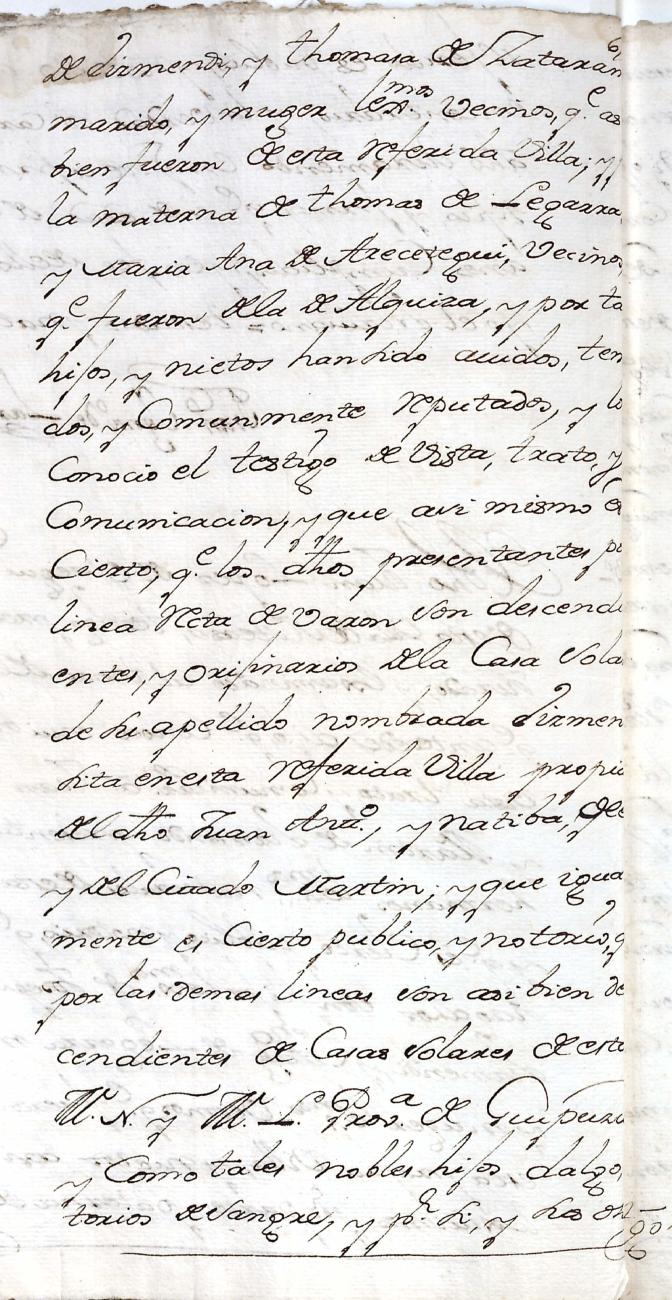 de Dirmendi, y thomasa de Zataran
marido, y muger lexmos. Vecinos, q.e as
bien fueron de esta referida Villa; y
la materna de thomas de Legarra,
y Maria Ana de Arecetegui, Vecinos,
q.e fueron dela de Alquiza, y por ta
hijos, y nietos han sido auidos, ten
dos, y Comunmente reputados, y lo
Conocio el testigo de Vista, trato, y
Comunicacion, y que assi mismo es
Cierto, q.e los dhos presentantes po
linea recta de Varon son descendi
entes, y orijinarios dela Casa Sola
de su apellido nombrada Dirmen
sita en esta referida Villa propia
del dho Juan Antt.o, y natiba, de
y del Citado Martin; y que igua
mente es Cierto publico, y notorio, q
por las demas lineas son asi bien de
cendientes de Casas Solares de esta
M. N. y M. L. Prov.a de Guipuzu
y Como tales nobles hijos dalgo,
torios de Sangre, y p.r si, y sus